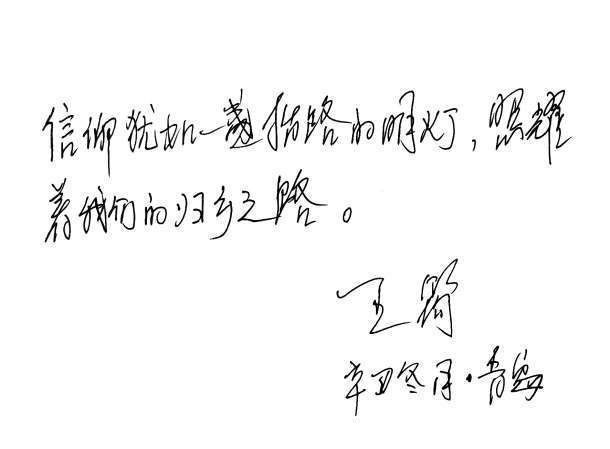 信仰犹如一盏指路的明灯，照耀
着我们的归乡之路。
王
辛丑冬月·青岛